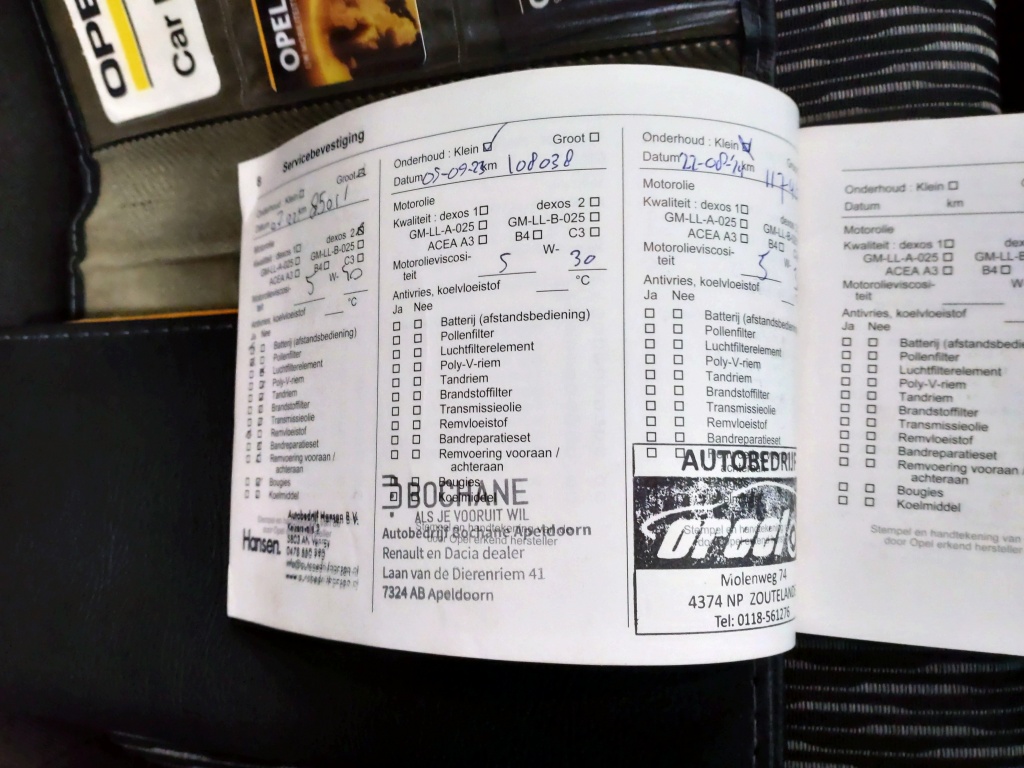 OPE
Car
OPEL
8 Servicebevestiging
Onderhoud : Klein Groot
Datum km 85011
Motorolie
Kwaliteit : dexos 1 dexos 2
GM-LL-A-025 GM-LL-B-025
ACEA A3 B4 C3
Motorolieviscosi-
teit 5 W- 30
°C
Antivries, koelvloeistof
Ja Nee
Batterij (afstandsbediening)
Pollenfilter
Luchtfilterelement
Poly-V-riem
Tandriem
Brandstoffilter
Transmissieolie
Remvloeistof
Bandreparatieset
Remvoering vooraan /
achteraan
Bougies
Koelmiddel
Hansen.
Autobedrijf Hansen B.V.
Onderhoud : Klein Groot
Datum 05-09-23 km 108038
Motorolie
Kwaliteit : dexos 1 dexos 2
GM-LL-A-025 GM-LL-B-025
ACEA A3 B4 C3
Motorolieviscosi-
teit 5 W- 30
Antivries, koelvloeistof °C
Ja Nee
Batterij (afstandsbediening)
Pollenfilter
Luchtfilterelement
Poly-V-riem
Tandriem
Brandstoffilter
Transmissieolie
Remvloeistof
Bandreparatieset
Remvoering vooraan /
achteraan
Bougies
Koelmiddel
BOCHANE
ALS JE VOORUIT WIL
Stempel en handtekening van de
door Opel erkend hersteller
Autobedrijf Bochane Apeldoorn
Renault en Dacia dealer
Laan van de Dierenriem 41
7324 AB Apeldoorn
Onderhoud : Klein
Datum 22-08-'24 km
Motorolie
Kwaliteit : dexos 1
GM-LL-A-025
ACEA A3 B4
Motorolieviscosi-
teit 5
Antivries, koelvloeistof
Ja Nee
Batterij (afstandsbediening)
Pollenfilter
Luchtfilterelement
Poly-V-riem
Tandriem
Brandstoffilter
Transmissieolie
Remvloeistof
Bandreparatieset
AUTOBEDRIJF
Molenweg 74
4374 NP ZOUTELAN
Tel: 0118-561276
Onderhoud : Klein
Datum km
Motorolie
Kwaliteit : dexos 1
GM-LL-A-025
ACEA A3 B4
Motorolieviscosi-
teit
Antivries, koelvloeistof
Ja Nee
Batterij (afstandsbedie
Pollenfilter
Luchtfilterelement
Poly-V-riem
Tandriem
Brandstoffilter
Transmissieolie
Remvloeistof
Bandreparatieset
Remvoering vooraan /
achteraan
Bougies
Koelmiddel
Stempel en handtekening van
door Opel erkend hersteller